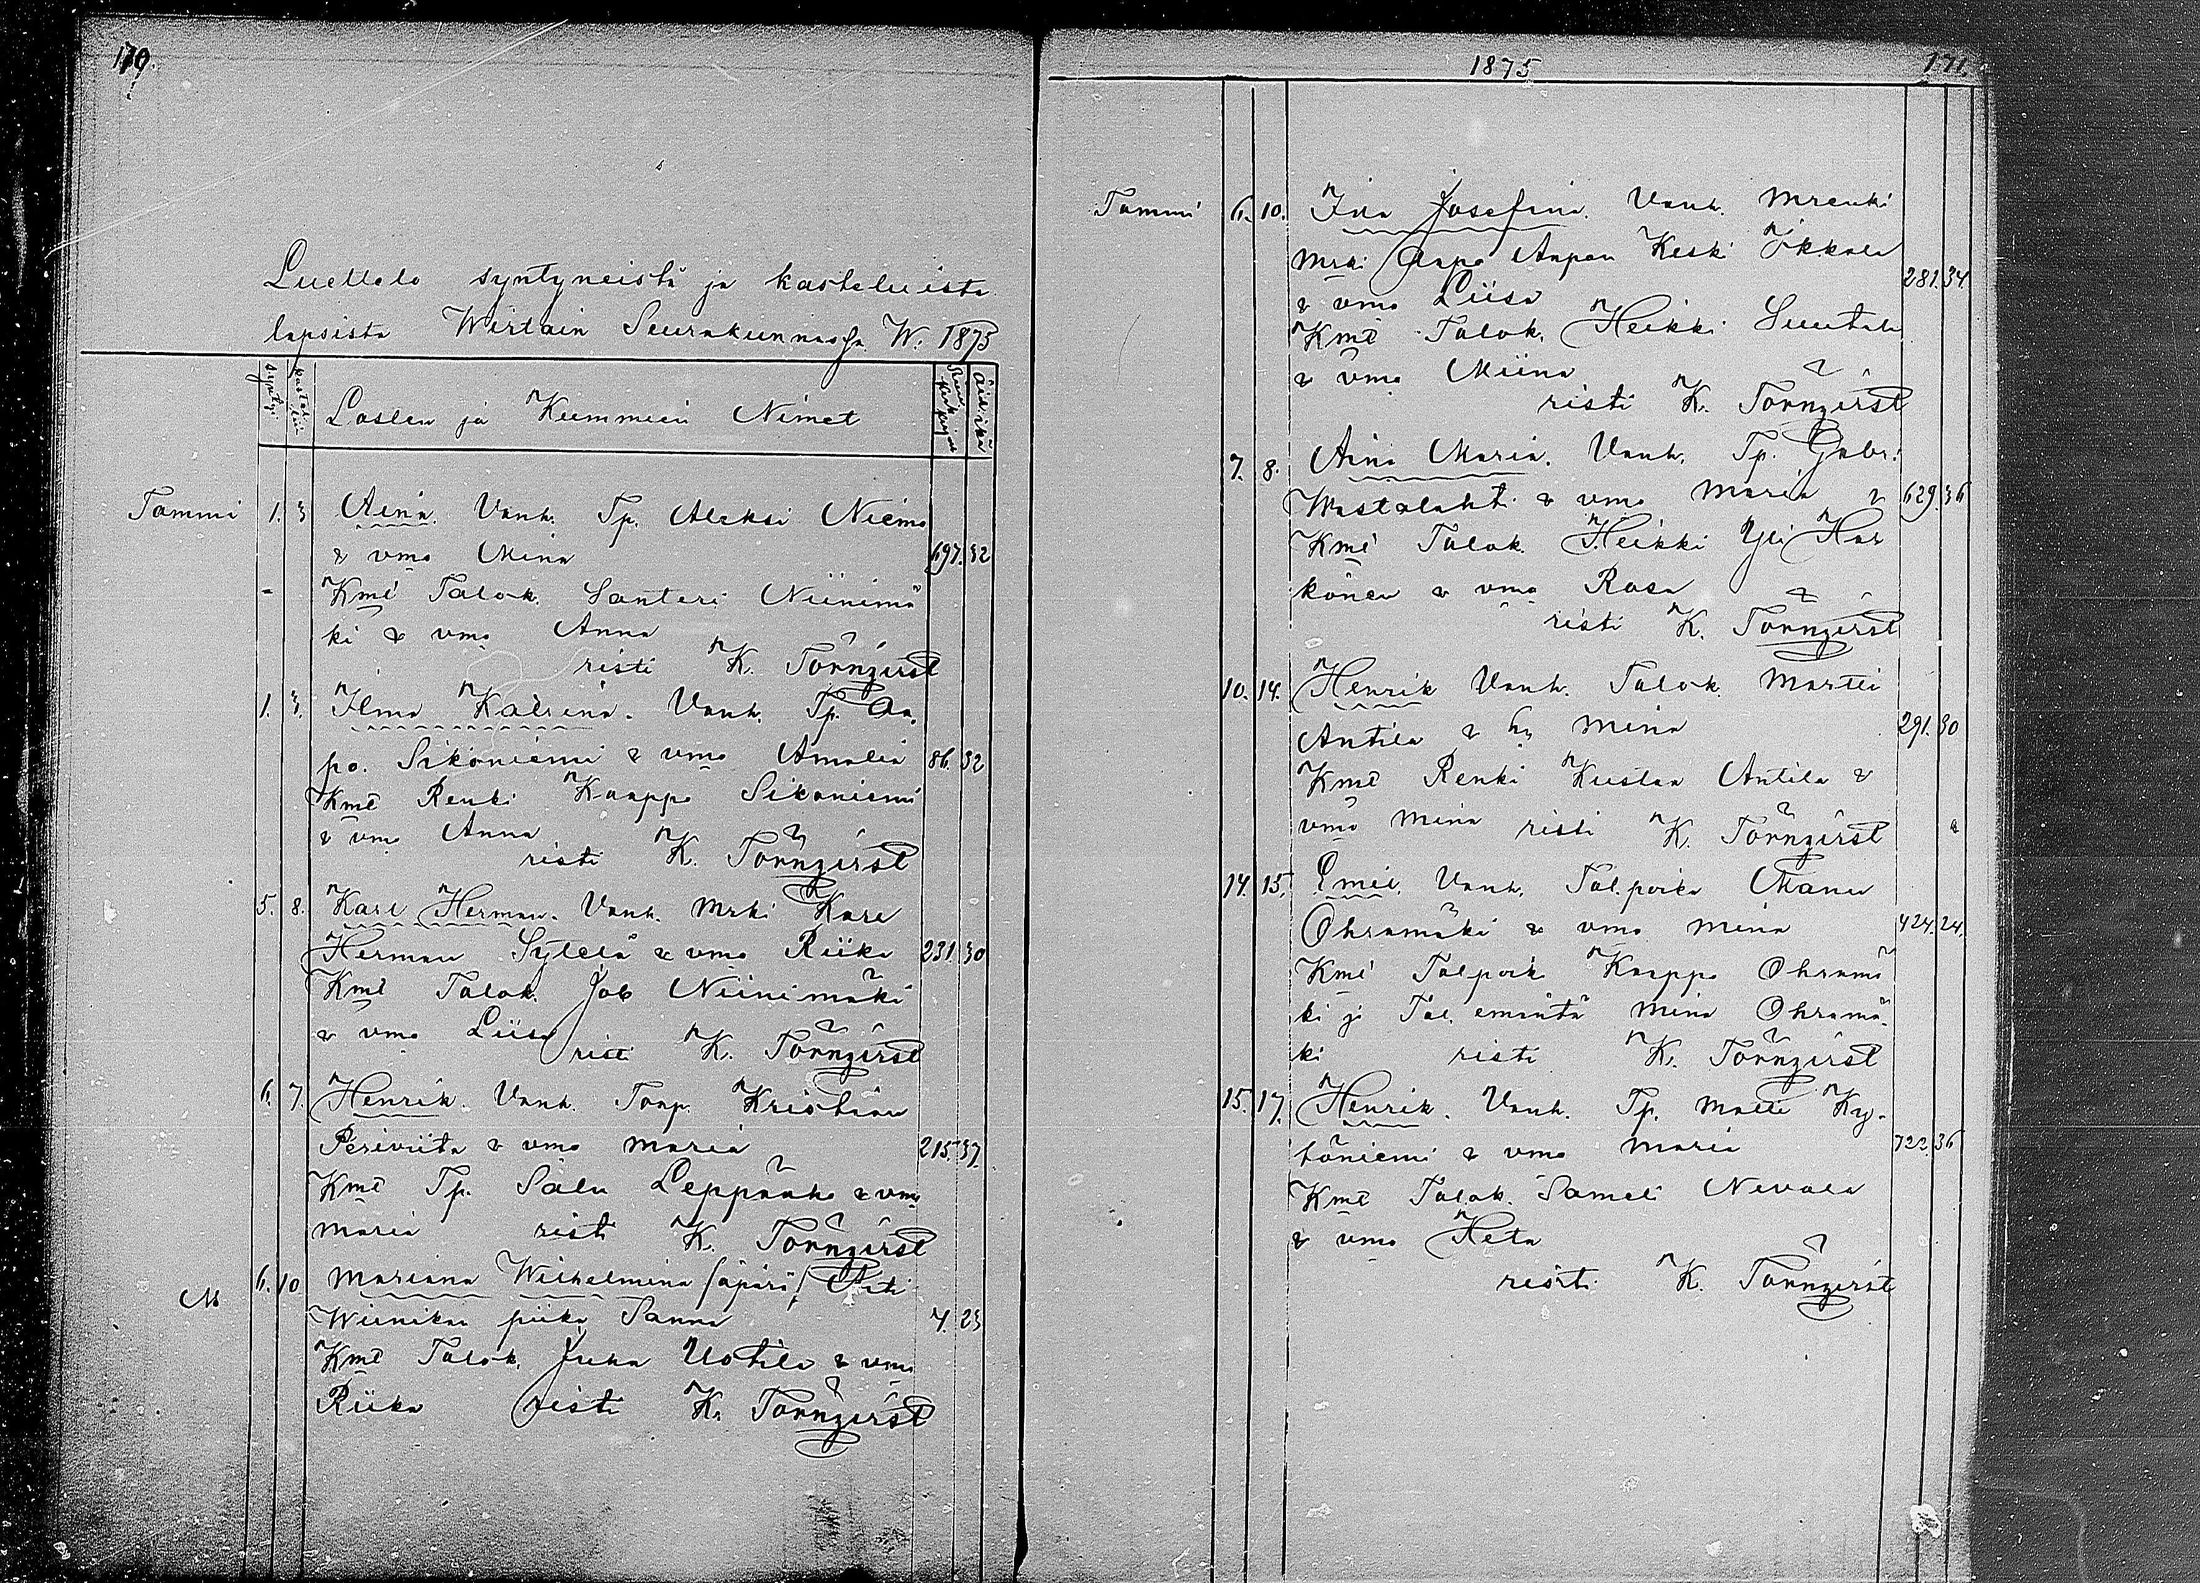 170.
Luettelo syntyneistä ja kastetuista
lapsista Wirtain Seurakunnassa W. 1875
syntyi kastettiin Lasten ja Kummien Nimet Äid. ikä
Tammi 1. 3 Aina. Vanh. Tp. Aleksi Niemi
& vmo Mina 697. 32
Kmt Talok. Santeri Niinimä
ki & vmo Anna
risti K. Törnqvist
1. 3. Ilma Katrina. Vanh. Tp. Aa
po. Sikoniemi & vmo Amalia 86. 32
Kmt Renki Kaappo Sikoniemi
& vmo Anna
risti K. Törnqvist
5. 8. Karl Herman. Vanh. Mrki Karl
Herman Sytelä & vmo Riika 231. 30
Kmt Talok. Job Niinimäki
& vmo Liisa
risti K. Törnqvist
6. 7. Henrik. Vanh. Torp. Kristian
Periviita & vmo Maria 215. 37.
Kmt Tp. Salu Leppäaho & vmo
Maria risti K. Törnqvist
M 6. 10 Mariana Wilhelmina /äpärä/ Äiti
Wiinikan piika Sanna 4. 23
Kmt Talok. Juha Uotila & vmo
Riika risti K. Törnqvist
1875
171.
Tammi 6. 10. Ida Josefina. Vanh. Mrenki
Mrki Aapo Aapon Keski Jokkala 281. 34
& vmo Liisa
Kmt Talok. Heikki Suutala
& vmo Miina
risti K. Törnqvist
7. 8. Aina Maria. Vanh. Tp. Gabr.
Wastalahti & vmo Maria 629. 36
Kmt Talok. Heikki Yli Har
könen & vmo Rosa
risti K. Törnqvist
10. 14. Henrik Vanh. Talok. Martti
Antila & hv Mina 291. 30
Kmt Renki Kustaa Antila &
vmo Mina risti K. Törnqvist
14. 15. Emil. Vanh. Tal.poika Manu
Ohramäki & vmo Mina 424. 24.
Kmt Talpoik Kaappo Ohramä
ki ja Tal. emäntä Mina Ohramä
ki risti K. Törnqvist
15. 17. Henrik. Vanh. Tp. Matti Ky-
töniemi & vmo Maria 722. 36
Kmt Talok. Sameli Nevala
& vmo Heta
risti K. Törnqvist